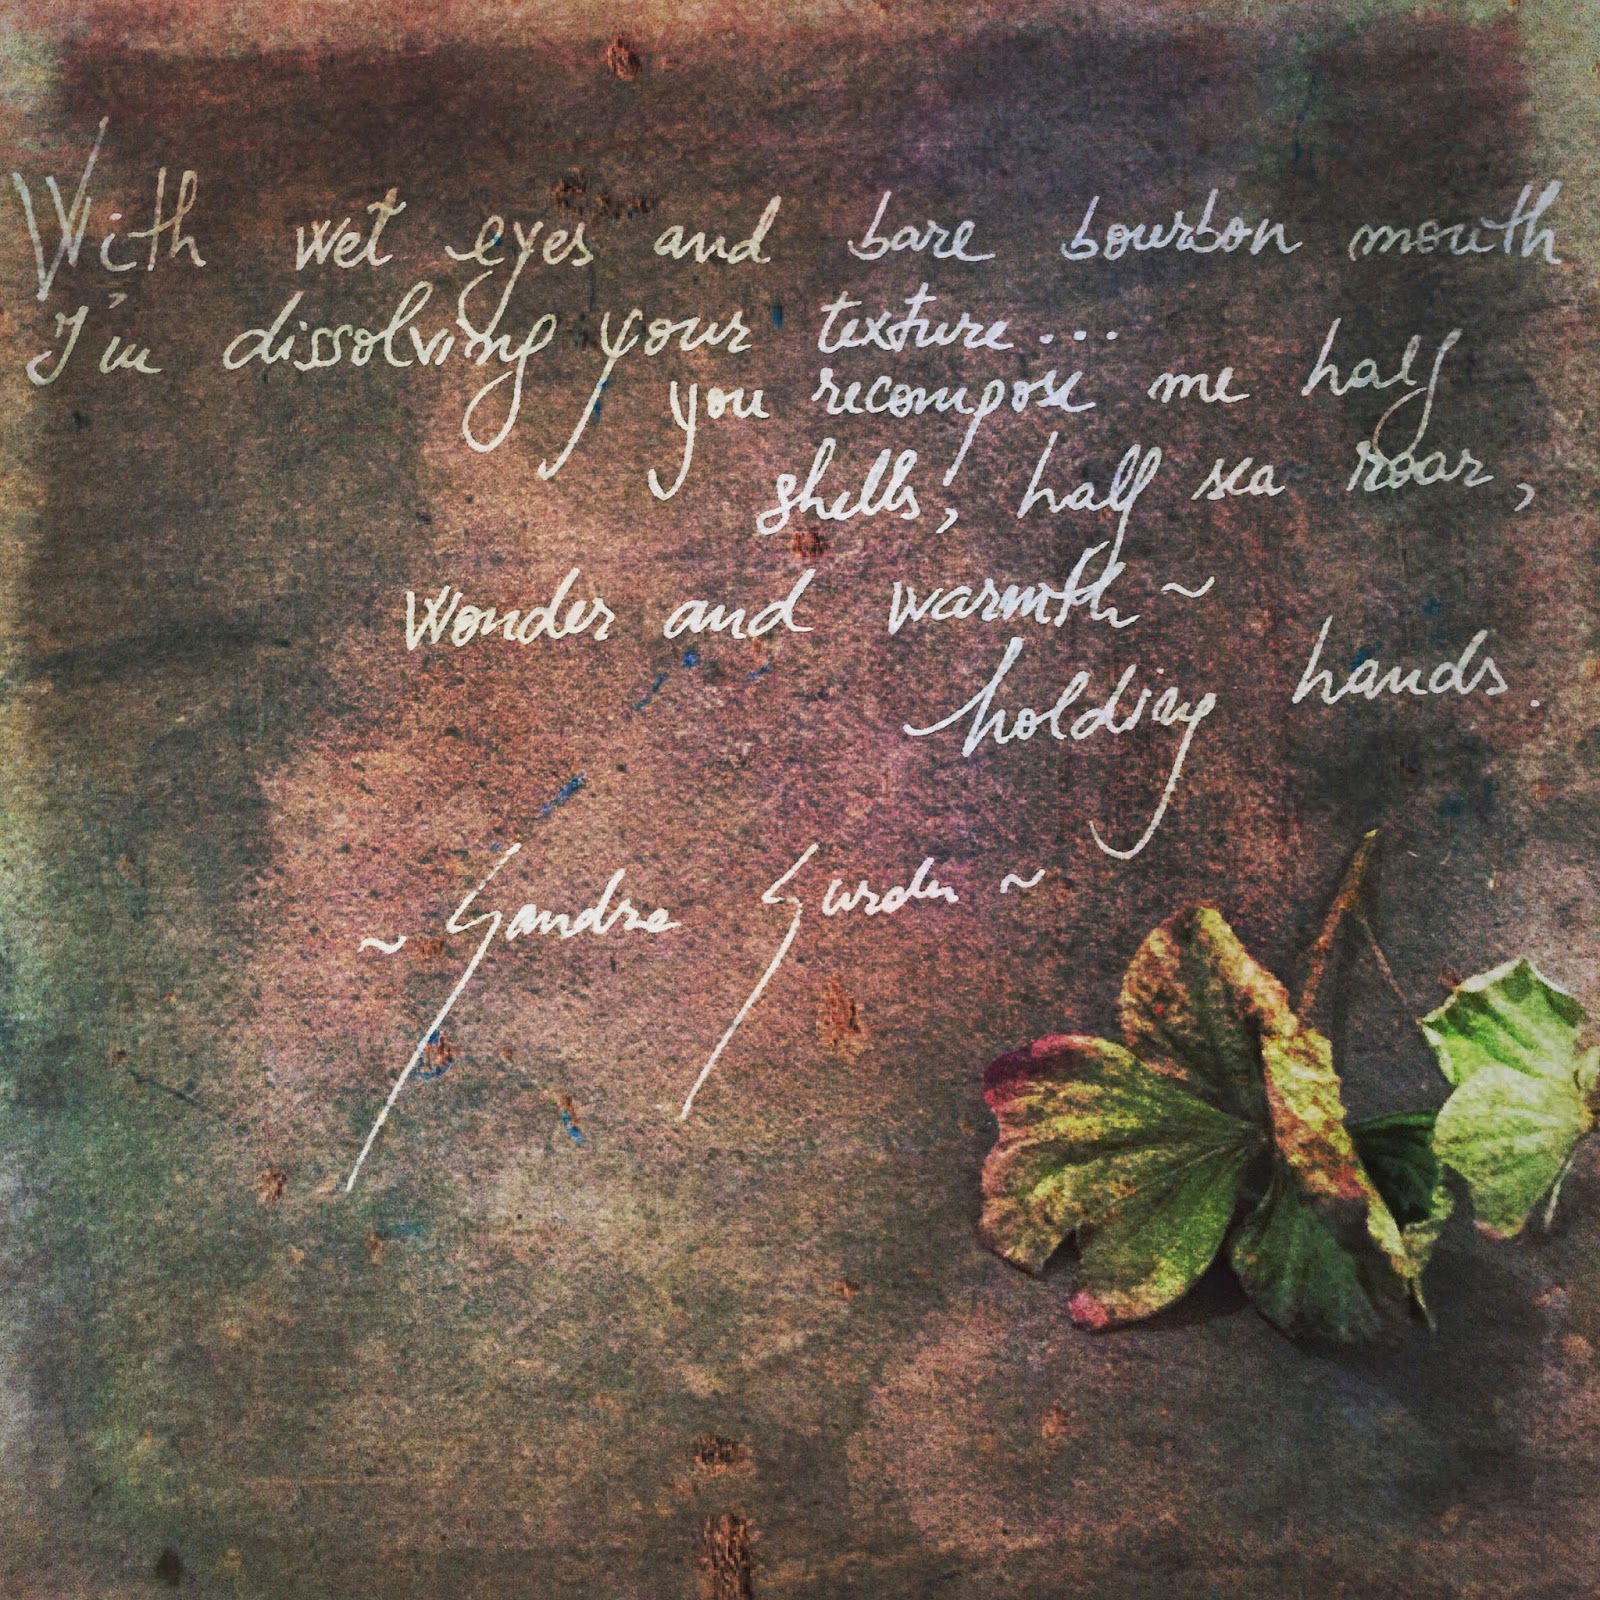 With wet eyes and bare bourbon mouth
I'm dissolving your texture...
you recompose me half
shells, half sea roar,
Wonder and warmth ~
holding hands.
~ Sandra ~